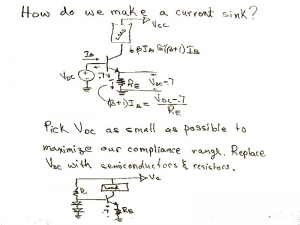 How do we make a current sink?
Vcc
Load
IB
βIB ≅ (β+1)IB
.7V
VDC
RE
VDC-.7
(β+1)IB = VDC-.7
RE
Pick VDC as small as possible to
maximize our compliance range. Replace
VDC with semiconductors & resistors.
Load
R1
.7
RE